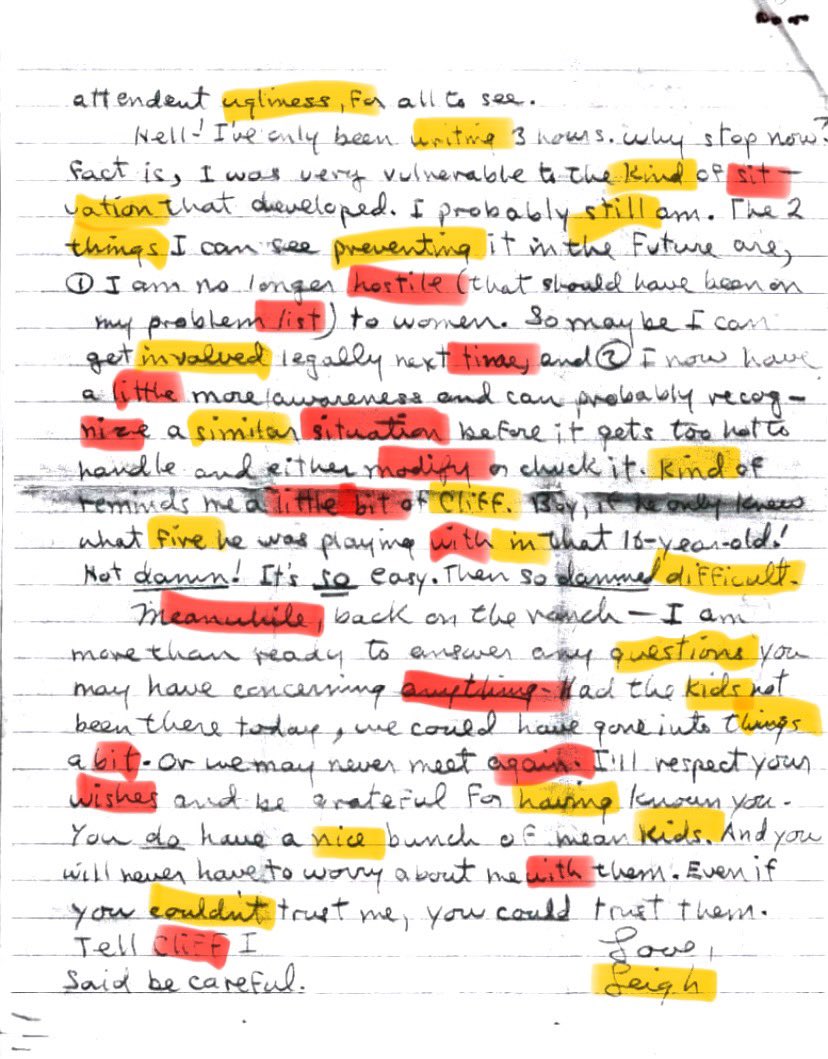 attendent ugliness, for all to see.
Hell! I've only been writing 3 hours. Why stop now?
Fact is, I was very vulnerable to the kind of sit-
uation that developed. I probably still am. The 2
things I can see preventing it in the future are,
① I am no longer hostile (that should have been on
my problem list) to women. So maybe I can
get involved legally next time, and ② I now have
a little more awareness and can probably recog-
nize a similar situation before it gets too hot to
handle and either modify or chuck it. Kind of
reminds me a little bit of Cliff. Boy, if he only knew
what fire he was playing with in that 16-year-old!
Not damn! It's so easy. Then so damned difficult.
Meanwhile, back on the ranch - I am
more than ready to answer any questions you
may have concerning anything. Had the kids not
been there today, we could have gone into things
a bit. Or we may never meet again. I'll respect your
wishes and be grateful for having known you.
You do have a nice bunch of mean kids. And you
will never have to worry about me with them. Even if
you couldn't trust me, you could trust them.
Tell Cliff I
Love,
said be careful.
Leigh